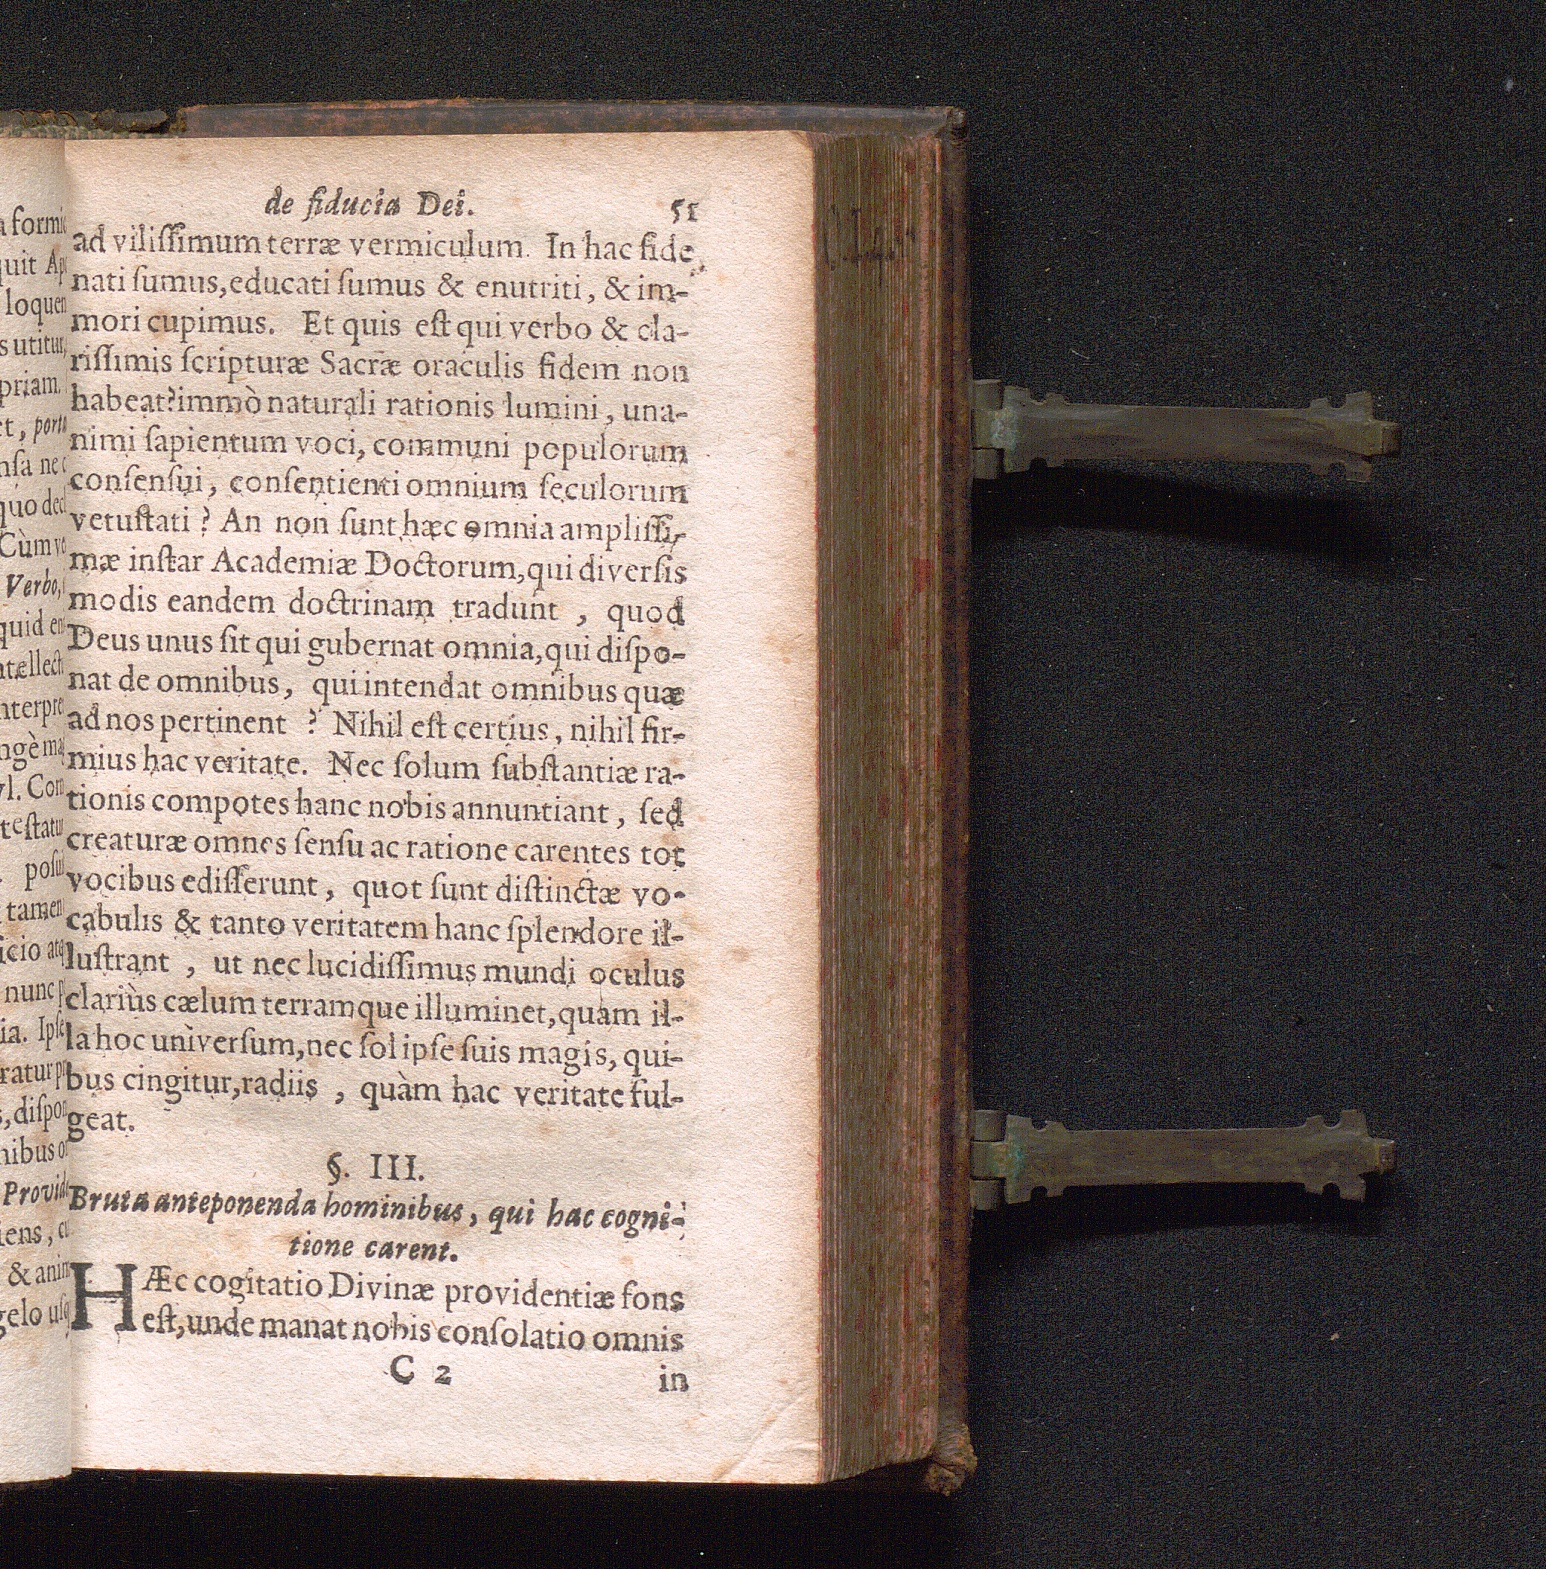 de fiducia Dei. 51
ad vilissimum terræ vermiculum. In hac fide
nati sumus, educati sumus & enutriti, & im-
mori cupimus. Et quis est qui verbo & cla-
rissimis scripturæ Sacræ oraculis fidem non
habeat? immò naturali rationis lumini, una-
nimi sapientum voci, communi populorum
consensui, consentienti omnium seculorum
vetustati? An non sunt hæc omnia amplissi-
mæ instar Academiæ Doctorum, qui diversis
modis eandem doctrinam tradunt, quod
Deus unus sit qui gubernat omnia, qui dispo-
nat de omnibus, qui intendat omnibus quæ
ad nos pertinent? Nihil est certius, nihil fir-
mius hac veritate. Nec solum substantiæ ra-
tionis compotes hanc nobis annuntiant, sed
creaturæ omnes sensu ac ratione carentes tot
vocibus edisserunt, quot sunt distinctæ vo-
cabulis & tanto veritatem hanc splendore il-
lustrant, ut nec lucidissimus mundi oculus
clariùs cælum terramque illuminet, quàm il-
la hoc universum, nec sol ipse suis magis, qui-
bus cingitur, radiis, quàm hac veritate ful-
geat.
§. III.
Bruta anteponenda hominibus, qui hac cogni-
tione carent.
HÆc cogitatio Divinæ providentiæ fons
est, unde manat nobis consolatio omnis
C 2 in